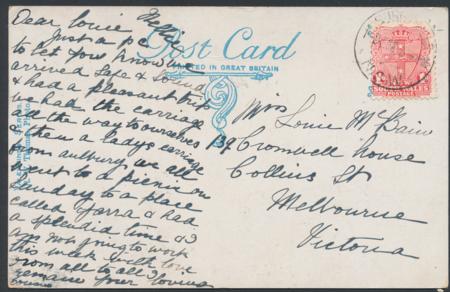 Dear Louie
Just a p.c
to let you know we
arrived safe & sound
& had a pleasant trip
we had the carriage
all the way to ourselves
& then a ladys carriage
from aulbury, we all
went to a picnic on
Sunday to a place
called Yarra & had
a splendid time as
am not going to work
this week with love
from all to all I
remain your loving
Nellie
Post Card
PRINTED IN GREAT BRITAIN
POSTAGE
Miss
Louie McBain
139 Cromwell house
Collins St
Melbourne
Victoria